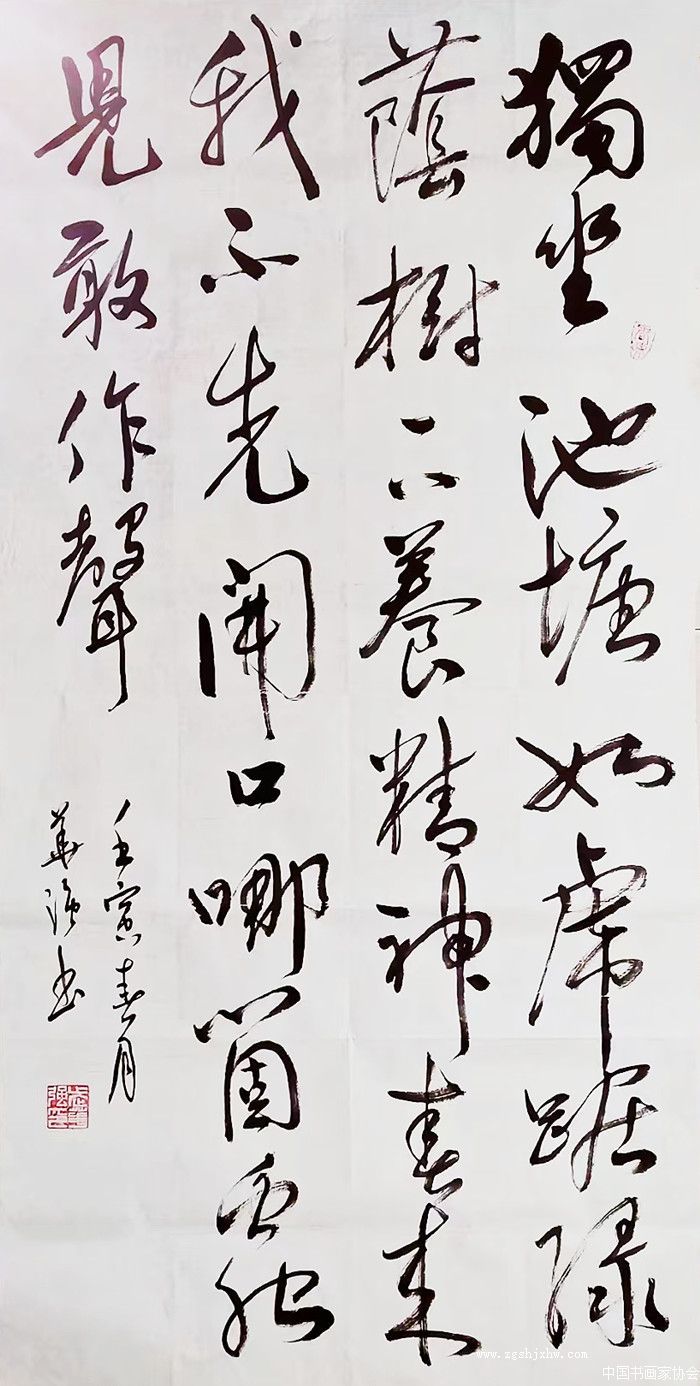 獨坐池塘如虎踞綠
蔭樹下養精神春來
我不先開口哪箇
兒敢作聲
壬寅春月
華强书
www.zgshjxhw.com
中国书画家协会